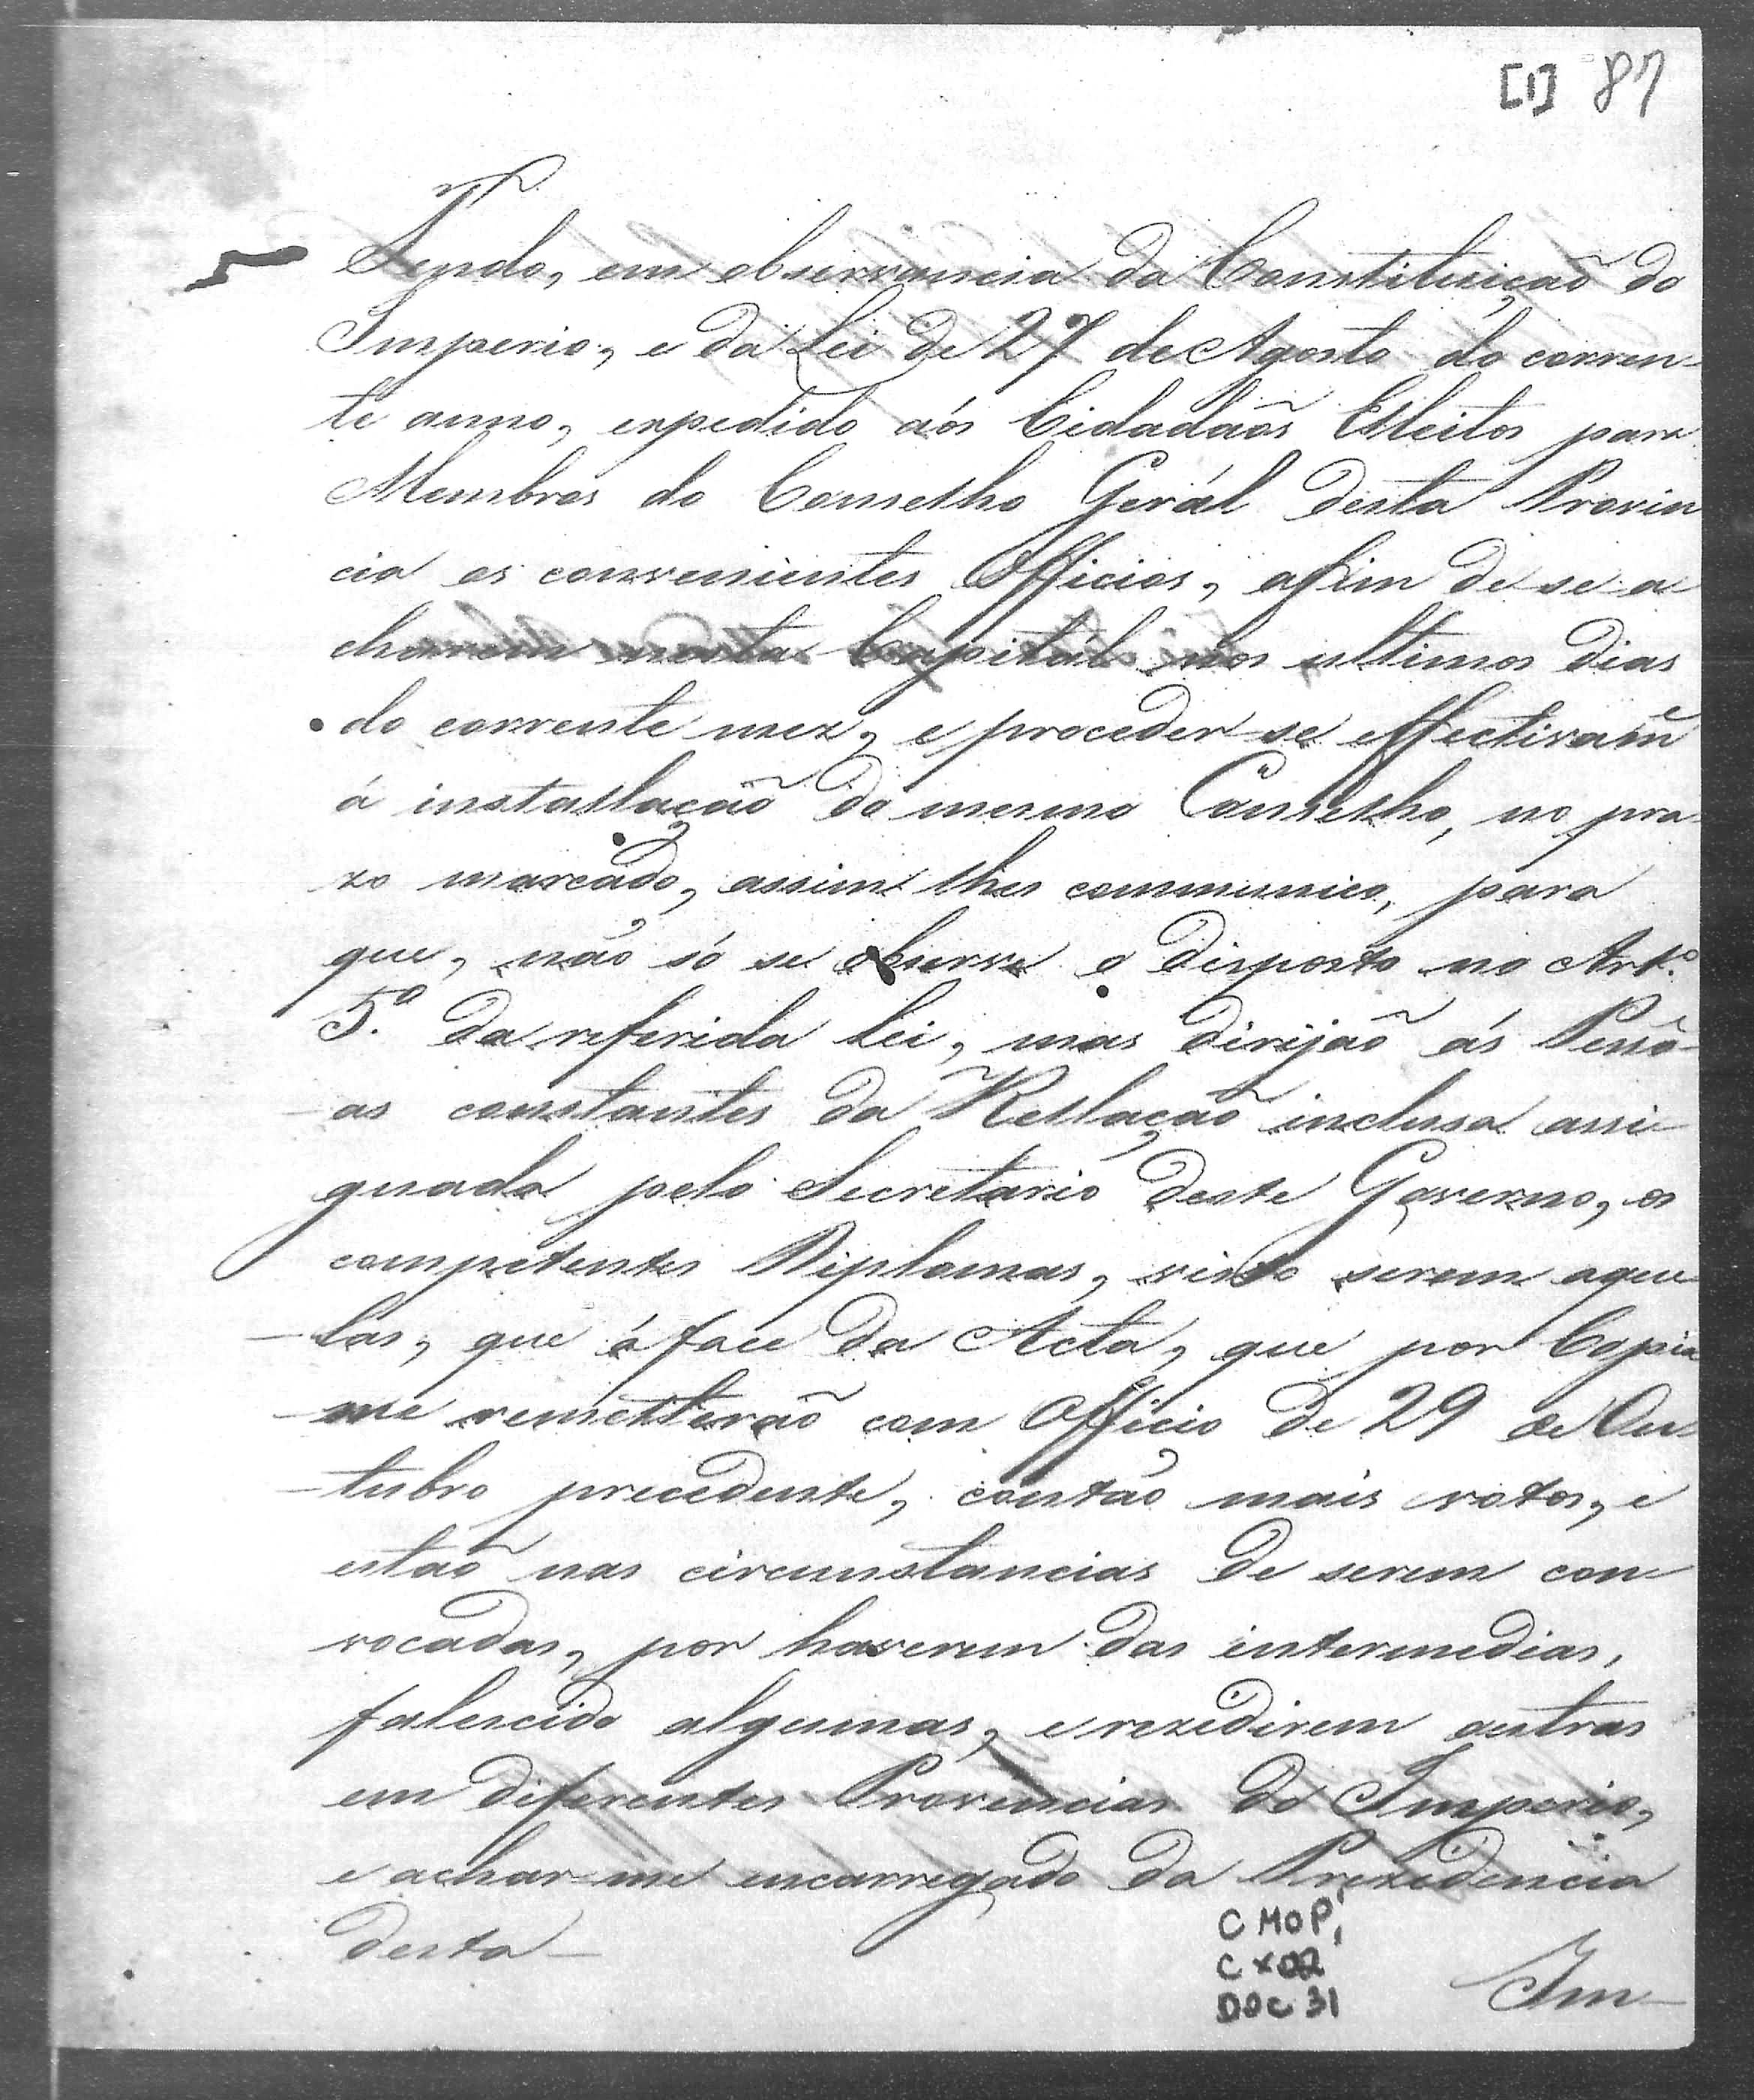 [1] 87
Tendo, em observancia da Constituiçaõ do
Imperio, e da Lei de 27 de Agosto do corren-
te anno, expedido aós Cidadaõs Elleitos para
Membros do Conselho Gerál desta Provin
cia os convenientes Officios, afim de se a
charem nesta Capitál nos ultimos dias
do corrente mez, e proceder-se effectivam.e
á installaçaõ do mesmo Conselho, no pra
zo marcado, assim lhes communico, para
que, não só se observe o disposto no Art.o
5.o da referida Lei, mas dirijaõ ás Pessô-
as constantes da Rellaçaõ inclusa assi-
gnada pelo Secretario deste Governo, os
competentes Diplomas, visto serem aquel-
las, que á face da Acta, que por Copia
me remetteraõ com Officio de 29 de Ou-
tubro precedente, contão mais votos, e
estaõ nas circumstancias de serem con
vocadas, por haverem das intermedias,
falescido algumas, e rezidirem outras
em diferentes Provincias do Imperio,
e achar-me encarregado da Prezidencia
desta
C MOP,
CX 02
DOC 31
Im-